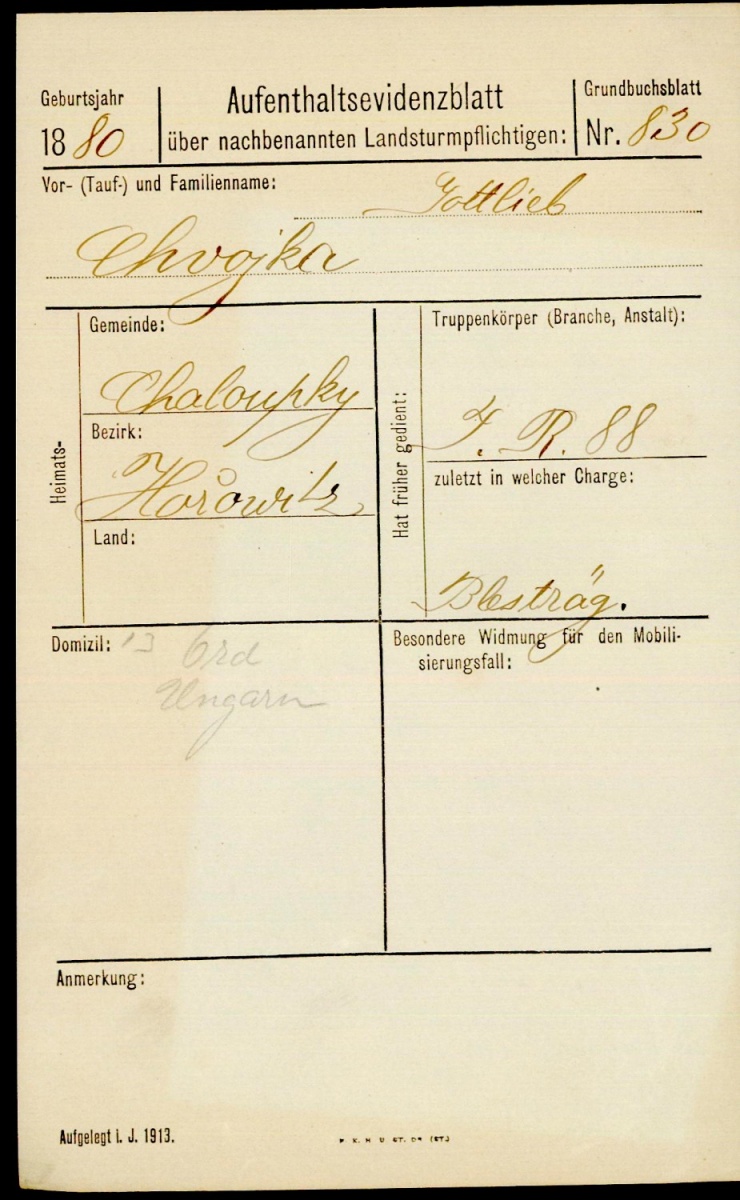 Geburtsjahr
1880
Aufenthaltsevidenzblatt
über nachbenannten Landsturmpflichtigen:
Grundbuchsblatt
Nr. 830
Vor- (Tauf-) und Familienname:
Gottlieb
Chvojka
Heimats-
Gemeinde:
Chaloupky
Bezirk:
Hořowitz
Land:
Hat früher gedient:
Truppenkörper (Branche, Anstalt):
I. R. 88
zuletzt in welcher Charge:
Blesträg.
Domizil: 13
Ungarn
Besondere Widmung für den Mobili-
sierungsfall:
Anmerkung:
Aufgelegt i. J. 1913.